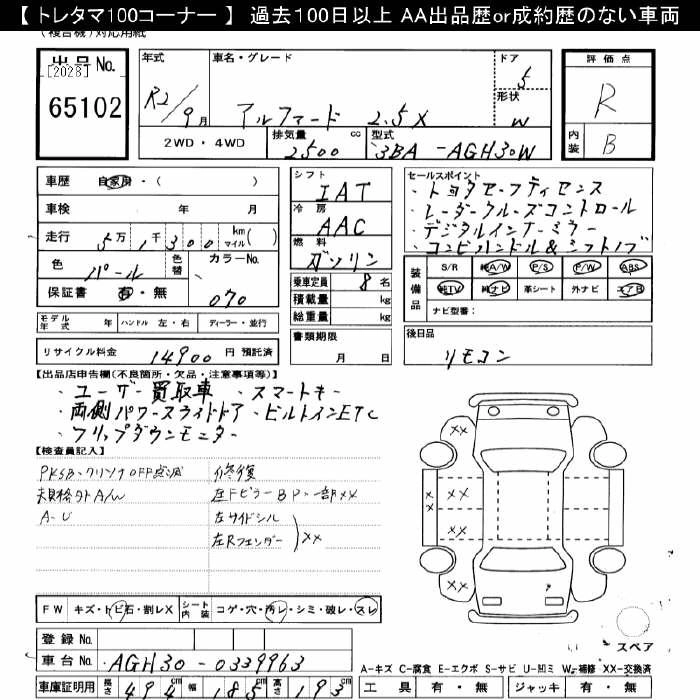 【 トレタマ100コーナー 】 過去100日以上 AA出品歴or成約歴のない車両
(複合機)対応用紙
出品No.
[2028]
65102
年式
R2/9月
車名・グレード
アルファード 2.5X
ドア
5
形状
W
2WD・4WD
排気量
2500 cc
型式
3BA-AGH30W
評価点
R
内装
B
車歴 自家用・( )
車検 年 月
走行 5万1千300 km マイル( )
色 パール
色替
カラーNo.
070
保証書 有・無
モデル年式 年 ハンドル 左・右 ディーラー・並行
リサイクル料金 14900 円 預託済
シフト
IAT
冷房
AAC
燃料
ガソリン
乗車定員 8 名
積載量 kg
総重量 kg
書類期限
月 日
セールスポイント
・トヨタセーフティセンス
・レーダークルーズコントロール
・デジタルインナーミラー
・コンビハンドル&シフトノブ
装備品
S/R 純A/W P/S P/W ABS
純TV 純ナビ 革シート 外ナビ エアB
ナビ型番:
後日品
リモコン
【出品店申告欄(不良箇所・欠品・注意事項等)】
・ユーザー買取車 ・スマートキー
・両側パワースライドドア ・ビルトインETC
・フリップダウンモニター
【検査員記入】
PKSB・クリソナOFF点滅
規格外A/W
A-U
修復
左Fピラー BP 一部XX
左サイドシル
左Rフェンダー
XX
XX
XX
XX
XX
XX
FW キズ・トビ石・割レX
シート内装 コゲ・穴・汚レ・シミ・破レ・スレ
登録No.
車台No. AGH30-0339963
車庫証明用 長さ 494cm 幅 185cm 高さ 193
スペア
A-キズ C-腐食 E-エクボ S-サビ U-凹ミ W-補修 XX-交換済
工具 有・無 ジャッキ 有・無